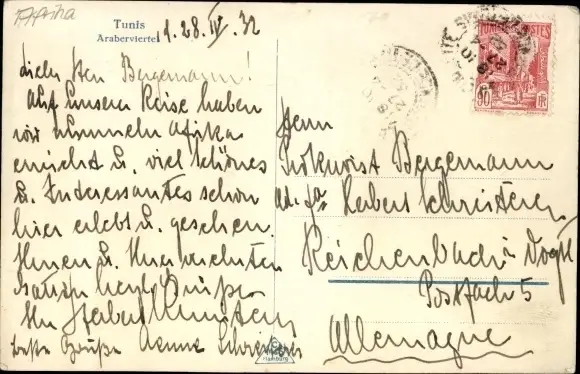 Afrika
Tunis
Araberviertel
28. IV. 32
Lieber Herr Bergemann!
Auf unserer Reise haben
wir nunmehr Afrika
erreicht u. viel Schönes
u. Interessantes schon
hier erlebt u. gesehen.
Ihnen u. Ihrer verehrten
Gattin herzl. Grüße
Ihr Herbert Schreiterer
beste Grüße Aenne Schreiterer
Herrn
Prokurist Bergemann
Herbert Schreiterer
Reichenbach i. Vogtl
Postfach 5
Allemagne
TUNISIE POSTES
90
Hamburg